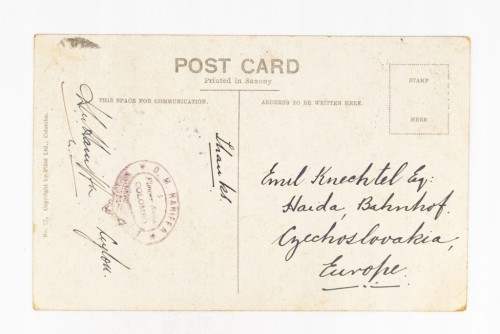 POST CARD
Printed in Saxony
THIS SPACE FOR COMMUNICATION.
ADDRESS TO BE WRITTEN HERE.
STAMP
HERE
No. 77, Copyright by Plâté Ltd., Colombo.
Haniffa
Ceylon.
Thanks.
O. M. HANIFFA
COLOMBO
Emil Knechtel Eq:
Haida, Bahnhof.
Czechoslovakia,
Europe.